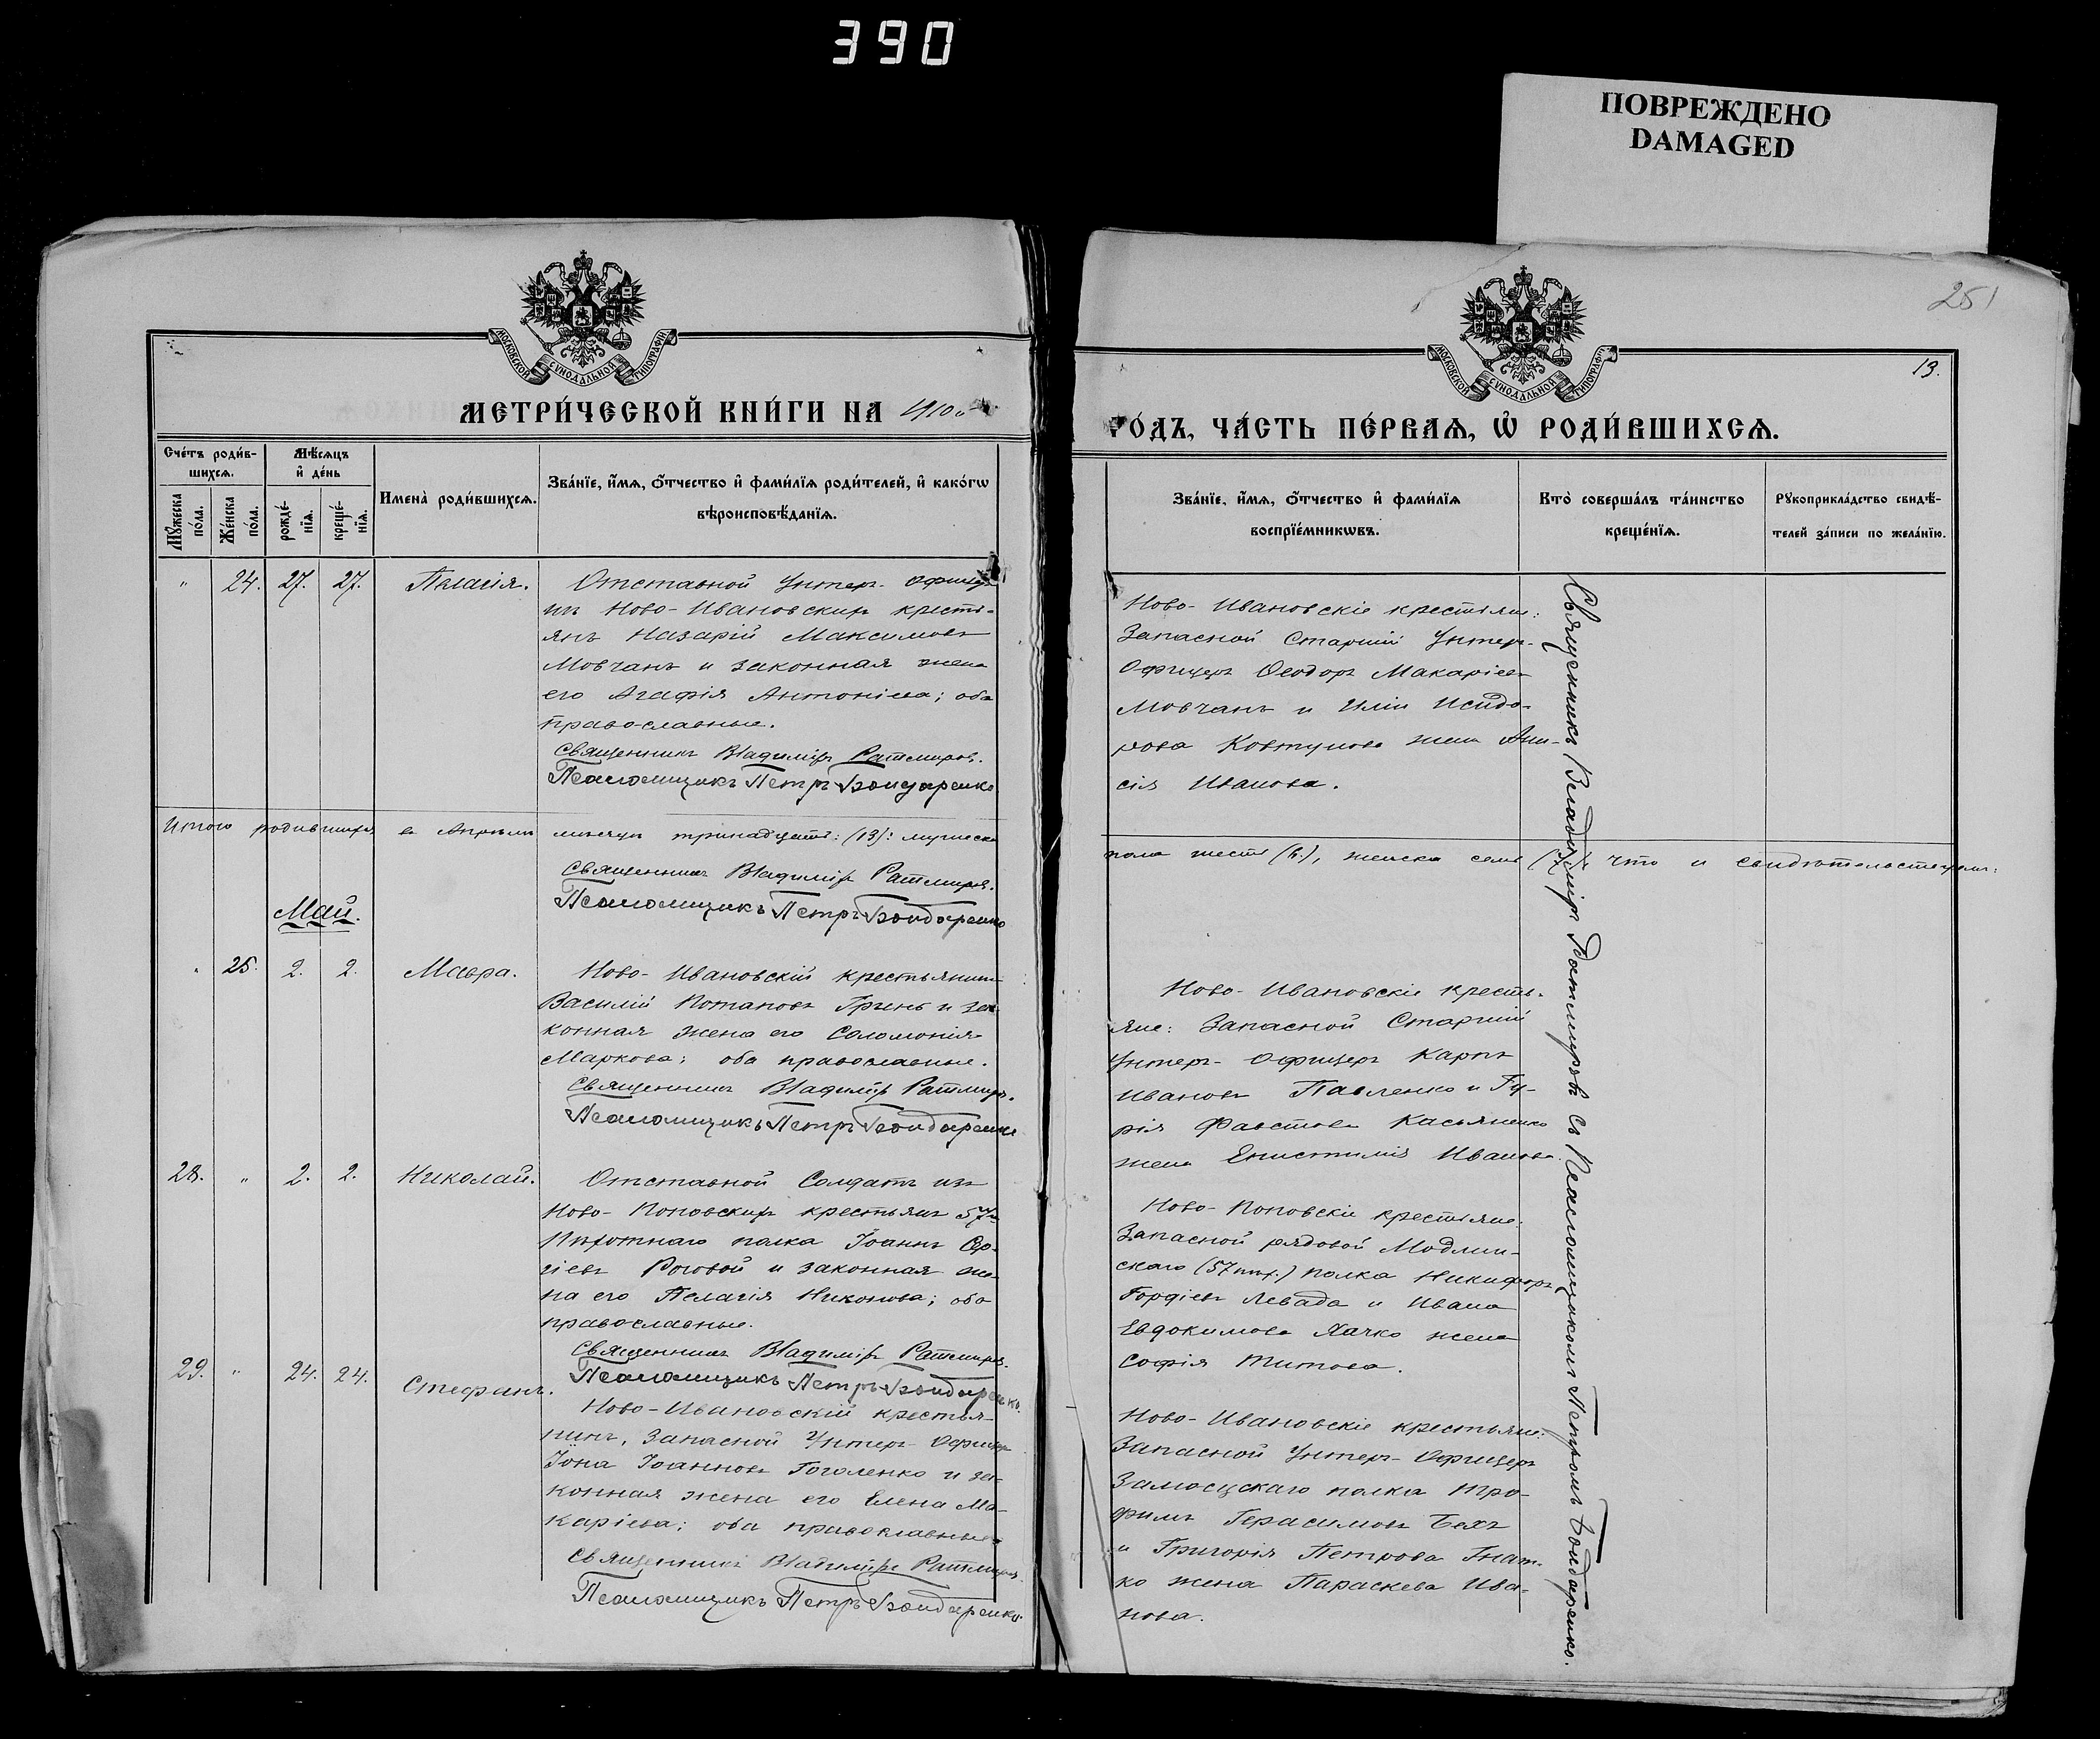 390
ПОВРЕЖДЕНО
DAMAGED
251
13.
МОСКОВСКОЙ СѴНОДАЛЬНОЙ ТИПОГРАФІИ
МОСКОВСКОЙ СѴНОДАЛЬНОЙ ТИПОГРАФІИ
МЕТРИ́ЧЕСКОЙ КНИ́ГИ НА 1910
ГО́ДЪ, ЧА́СТЬ ПЕ́РВАѦ, Ѡ҆ РОДИ́ВШИХСѦ.
Сче́тъ роди́в-
шихсѧ.
Мѣ́сѧцъ
и҆ де́нь
Мꙋ́жеска по́ла.
Же́нска по́ла.
рожде́-
нїѧ.
креще́-
нїѧ.
Имена̀ роди́вшихсѧ.
Зва́нїе, и҆́мѧ, ѻ҆́тчество и҆ фами́лїѧ роди́телей, и҆ како́гѡ
вѣроисповѣ́данїѧ.
Зва́нїе, и҆́мѧ, ѻ҆́тчество и҆ фами́лїѧ
воспрїе́мникѡвъ.
Кто̀ соверша́лъ та́инство
креще́нїѧ.
Рꙋкоприкла́дство свидѣ́-
телей за́писи по жела́нїю.
" 24. 27. 27. Пелагія.
Отставной Унтеръ-Офицеръ
изъ Ново-Ивановскихъ кресть-
янъ Назарій Максимовъ
Мовчанъ и законная жена
его Агафія Антоніева; оба
православные.
Священникъ Владиміръ Ратмировъ.
Псаломщикъ Петръ Бондаренко
Ново-Ивановскіе крестьяне:
Запасной Старшій Унтеръ-
Офицеръ Ѳеодоръ Макаріевъ
Мовчанъ и Иліи Исидо-
рова Ковтунова жена Ани-
сія Иванова.
Итого родившихся въ Апрѣлѣ мѣсяцѣ тринадцать: (13): мужеска
пола шесть (6.), женска семь (7.): что и свидѣтельствуемъ:
Священникъ Владиміръ Ратмировъ.
Псаломщикъ Петръ Бондаренко
Май.
" 25. 2. 2. Мавра.
Ново-Ивановскій крестьянинъ
Василій Потаповъ Гринь и за-
конная жена его Соломонія
Маркова; оба православные.
Священникъ Владиміръ Ратмировъ.
Псаломщикъ Петръ Бондаренко
Ново-Ивановскіе кресть-
яне: Запасной Старшій
Унтеръ-Офицеръ Карпъ
Ивановъ Павленко и Гу-
рія Фавстова Касьяненко
жена Епистимія Иванова.
28. " 2. 2. Николай.
Отставной Солдатъ изъ
Ново-Поповскихъ крестьянъ 57го
Пѣхотнаго полка Іоаннъ Сер-
гіевъ Роговой и законная же-
на его Пелагія Никонова; оба
православные.
Священникъ Владиміръ Ратмировъ.
Псаломщикъ Петръ Бондаренко.
Ново-Поповскіе крестьяне:
Запасной рядовой Модлин-
скаго (57 пѣх.) полка Никифоръ
Гордіевъ Левада и Ивана
Евдокимова Лячко жена
Софія Титова.
29. " 24. 24. Стефанъ.
Ново-Ивановскій крестья-
нинъ, Запасной Унтеръ-Офицеръ
Іона Іоанновъ Гоголенко и за-
конная жена его Елена Ма-
каріева; оба православные
Священникъ Владиміръ Ратмировъ
Псаломщикъ Петръ Бондаренко
Ново-Ивановскіе крестьяне:
Запасной Унтеръ-Офицеръ
Замосцскаго полка Тро-
фимъ Герасимовъ Бехъ
и Григорія Петрова Гнат-
ко жена Параскева Ива-
нова.
Священникъ Владиміръ Ратмировъ съ Псаломщикомъ Петромъ Бондаренко.